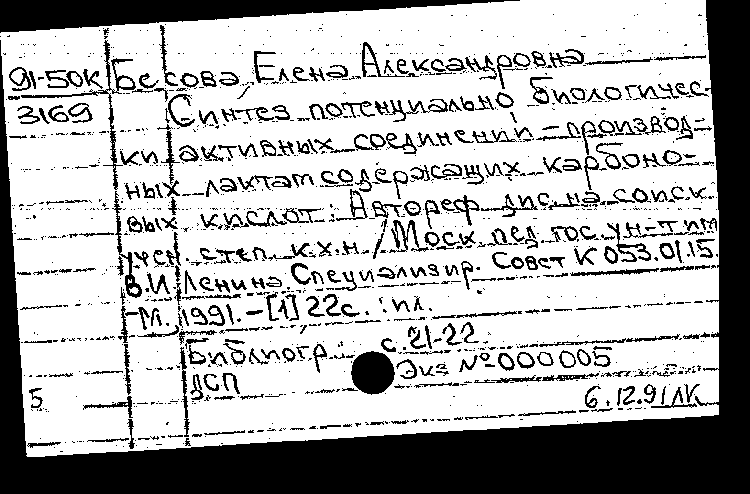 91-50К Бесова, Елена Александровна
3169 Синтез потенциально биологичес-
ки активных соединений – производ-
ных лактамсодержащих карбоно-
вых кислот: Автореф. дис. на соиск.
учен. степ. к.х.н. / Моск. пед. гос. ун-т им
В.И. Ленина. Специализир. Совет К 053.01.15.
-М., 1991. – [1] 22с. : ил.
Библиогр.: с. 21-22.
ДСП Экз №000005
5 6.12.91 ЛК